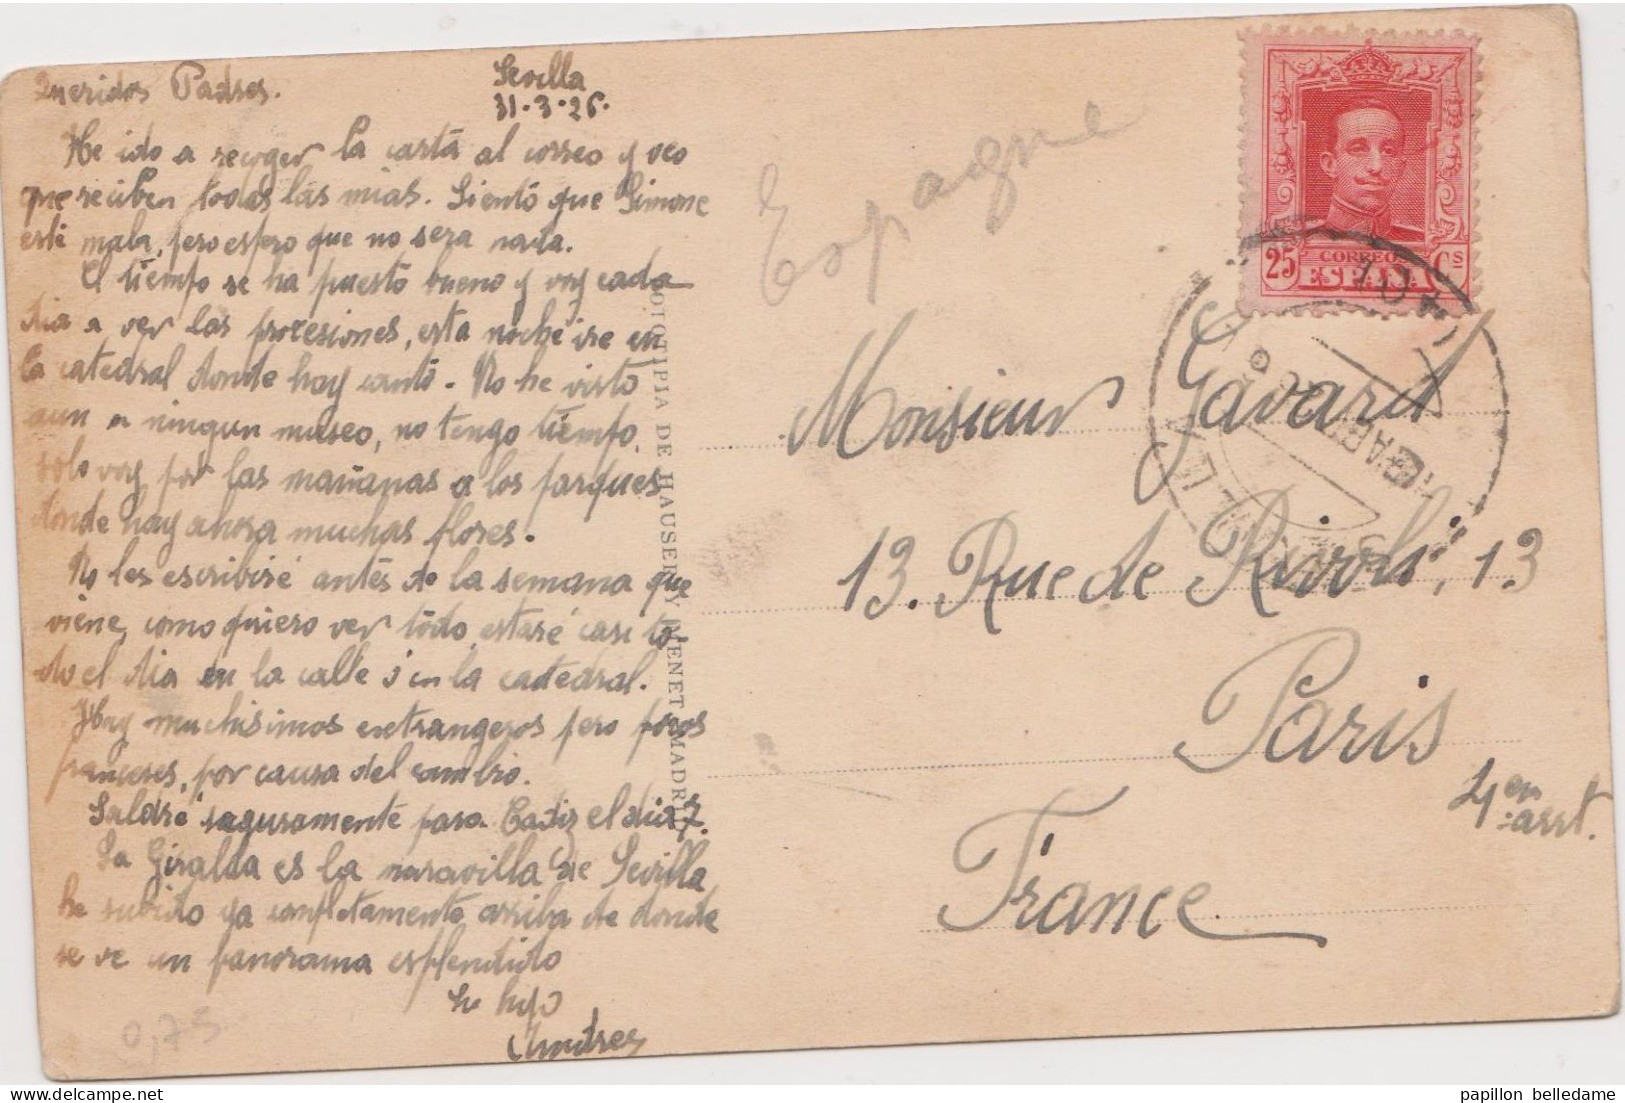 Queridos Padres.
Sevilla
31-3-26.
He ido a recoger la carta al correo y veo
que reciben todas las mias. Siento que Simone
esté mala, pero espero que no sera nada.
El tiempo se ha puesto bueno y voy cada
dia a ver las procesiones, esta noche ire en
la catedral donde hay canto. No he visto
aun a ningun museo, no tengo tiempo.
solo voy por las mañanas a los parques
donde hay ahora muchas flores.
No les escribiré antes de la semana que
viene, como quiero ver todo, estaré casi to-
do el dia en la calle ó en la catedral.
Hay muchisimos extrangeros pero pocos
franceses, por causa del cambio.
Saldré seguramente para Cadiz el dia 7.
La Giralda es la maravilla de Sevilla,
he subido ya completamente arriba de donde
se ve un panorama esplendido
Su hijo
Andres
0,75
FOTOTIPIA DE HAUSER Y MENET - MADRID
Espagne
CORREOS
25 ESPAÑA Cs
Monsieur Gavard
13. Rue de Rivoli, 13
Paris
4 en arrt.
France
papillon belledame